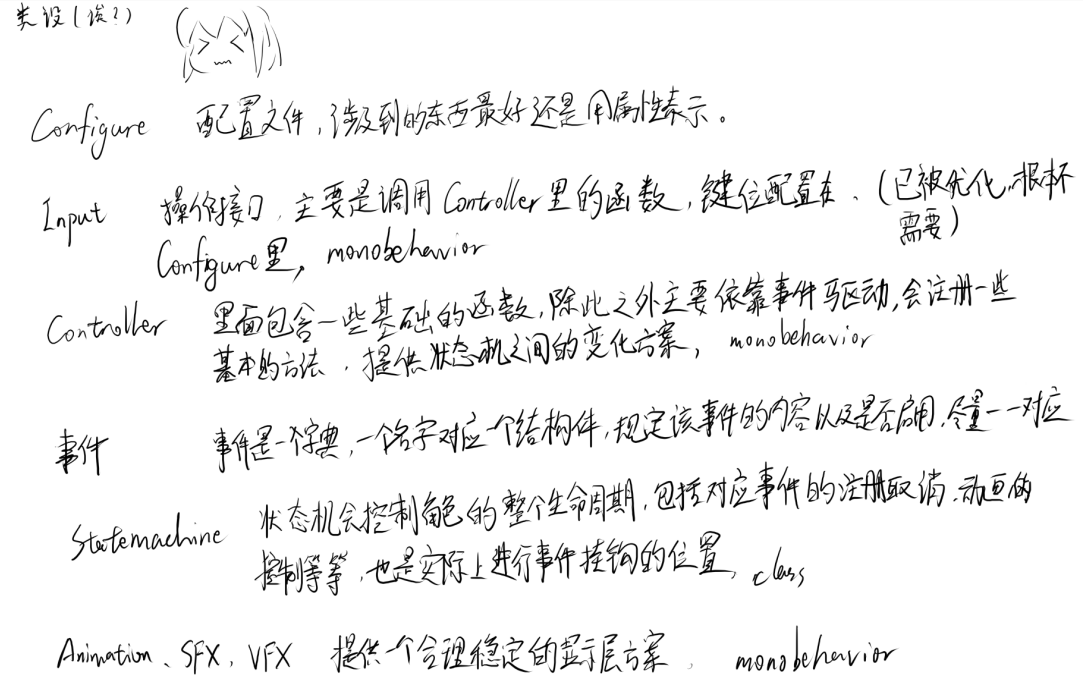 类设(误?)
Configure 配置文件,涉及到的东西最好还是用属性表示。
Input 操作接口,主要是调用Controller里的函数,键位配置在、(已被优化,根本不
需要)
Configure里,monobehavior
Controller 里面包含一些基础的函数,除此之外主要依靠事件驱动,会注册一些
基本的方法,提供状态机之间的变化方案, monobehavior
事件 事件是一个字典,一个名字对应一个结构体,规定该事件的内容以及是否启用,尽量一一对应
Statemachine 状态机会控制角色的整个生命周期,包括对应事件的注册取消、动画的
控制等等,也是实际上进行事件挂钩的位置, class
Animation、SFX、VFX 提供一个合理稳定的显示层方案, monobehavior